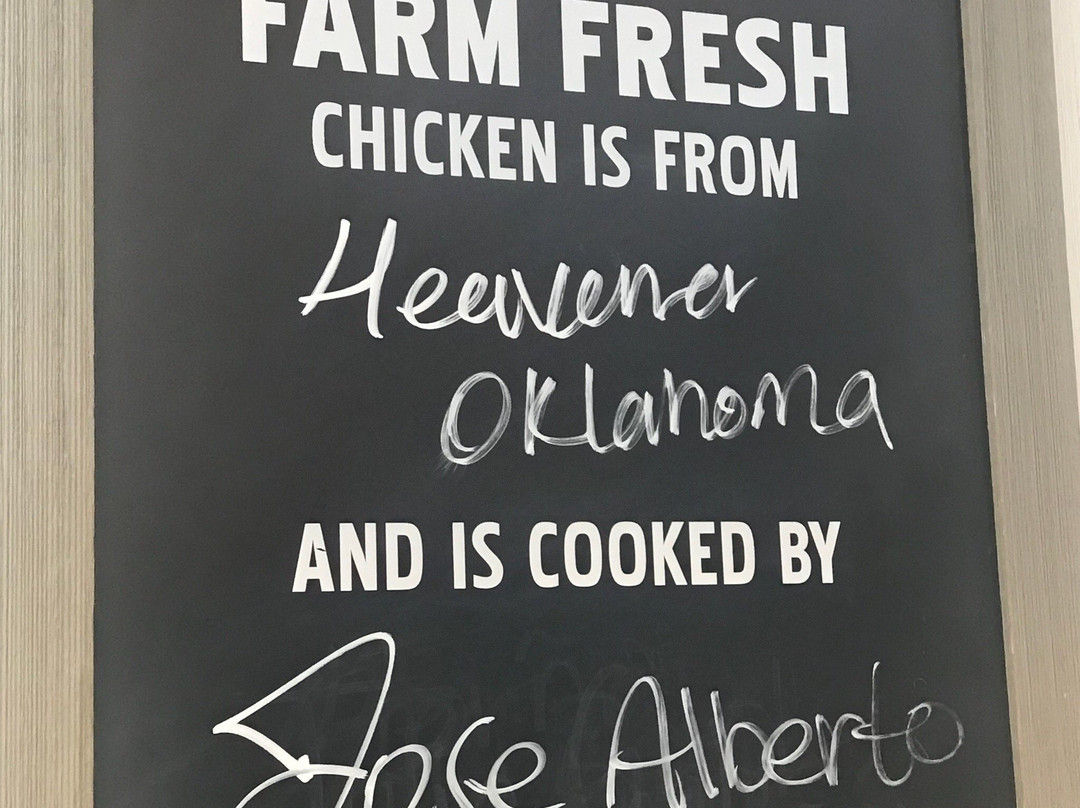 FARM FRESH
CHICKEN IS FROM
Heavener
Oklahoma
AND IS COOKED BY
Jose Alberto